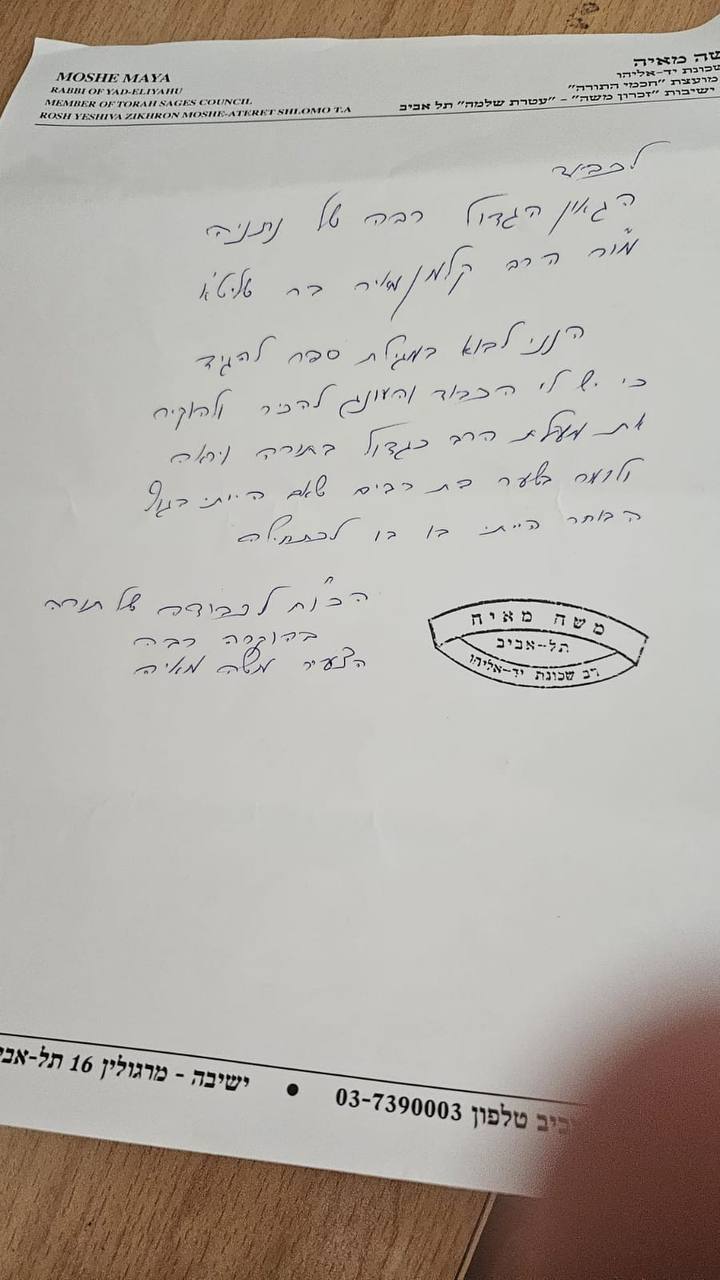 MOSHE MAYA
RABBI OF YAD-ELIYAHU
MEMBER OF TORAH SAGES COUNCIL
ROSH YESHIVA ZIKHRON MOSHE-ATERET SHLOMO T.A
שה מאיה
שכונת יד-אליהו
מועצת "חכמי התורה"
ישיבות "זכרון משה" - "עטרת שלמה" תל אביב
לכבוד
הגאון הגדול רבה של נתניה
מו"ר הרב קלמן מאיר בר שליט"א
הנני לבוא במגילת ספר להגיד
כי יש לי הכבוד והעונג להכיר ולהוקיר
את מעלת הרב כגדול בתורה ויראה
ולומר בשער בת רבים שאם הייתי בגוף
הבוחר הייתי בו בו לכתחילה
הכו"ח לכבודה של תורה
בהוקרה רבה
הצעיר משה מאיה
משה מאיה
תל-אביב
רב שכונת יד-אליהו
ישיבה - מרגולין 16 תל-אבי
ביב טלפון 03-7390003